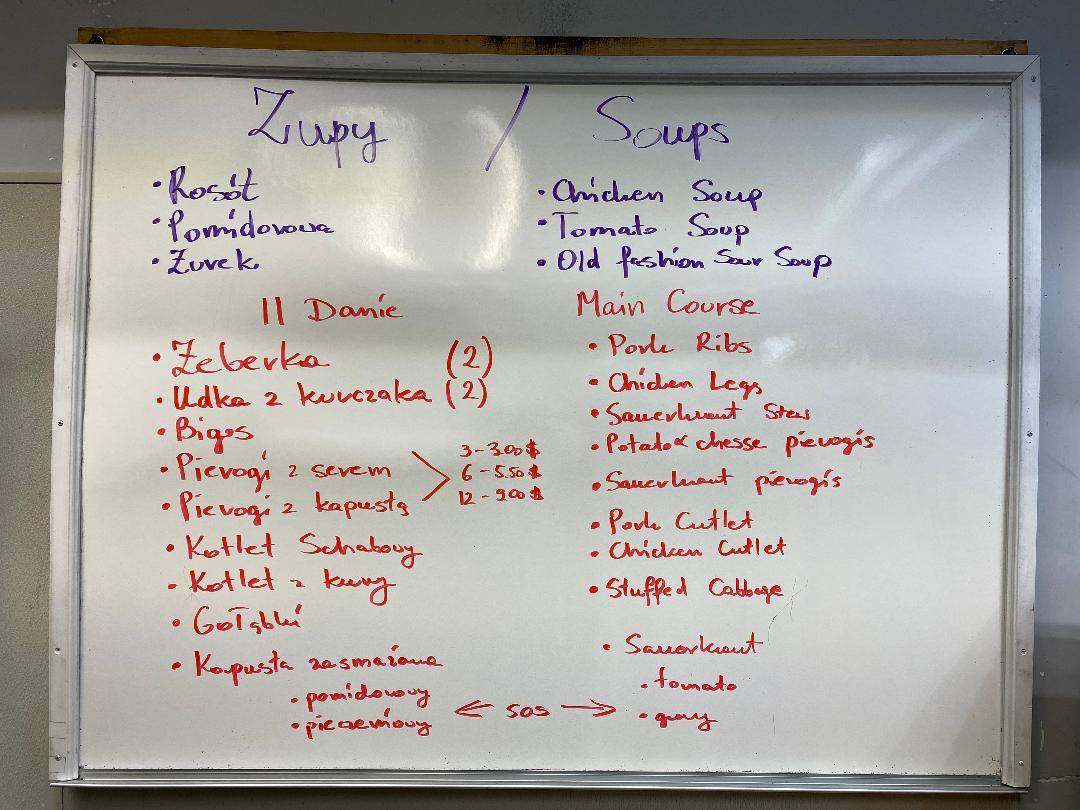 Zupy / Soups
• Rosół
• Pomidorowa
• Żurek
• Chicken Soup
• Tomato Soup
• Old fashion Sour Soup
II Danie
• Żeberka (2)
• Udka z kurczaka (2)
• Bigos
• Pierogi z serem
• Pierogi z kapustą
3 - 3.00$
6 - 5.50$
12 - 9.00$
• Kotlet Schabowy
• Kotlet z kury
• Gołąbki
• Kapusta zasmażana
• pomidorowy
• pieczeniowy
Main Course
• Pork Ribs
• Chicken Legs
• Sauerkraut Stew
• Potato & chesse pierogis
• Sauerkraut pierogis
• Pork Cutlet
• Chicken Cutlet
• Stuffed Cabbage
• Sauerkraut
• tomato
• gravy
← sos →